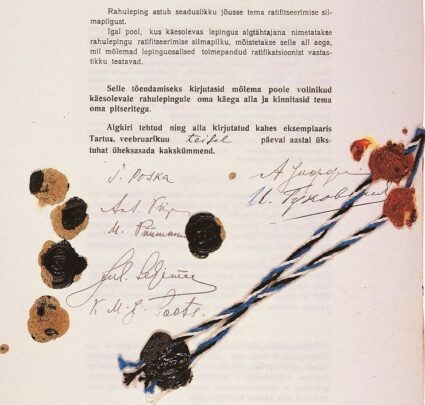 Rahuleping astub seaduslikku jõusse tema ratifitseerimise sil-
mapilgust.
Igal pool, kus käesolevas lepingus algtähtajana nimetatakse
rahulepingu ratifitseerimise silmapilku, mõistetakse selle all aega,
mil mõlemad lepinguosalised toimepandud ratifikatsioonist vastas-
tikku teatavad.
Selle tõendamiseks kirjutasid mõlema poole volinikud
käesolevale rahulepingule oma käega alla ja kinnitasid tema
oma pitseritega.
Algkiri tehtud ning alla kirjutatud kahes eksemplaaris
Tartus, veebruarikuu teisel päeval aastal üks-
tuhat üheksasada kakskümmend.
J. Poska
A. Joffe
Ant. Piip
M. Püümann
Jul. Seljamaa